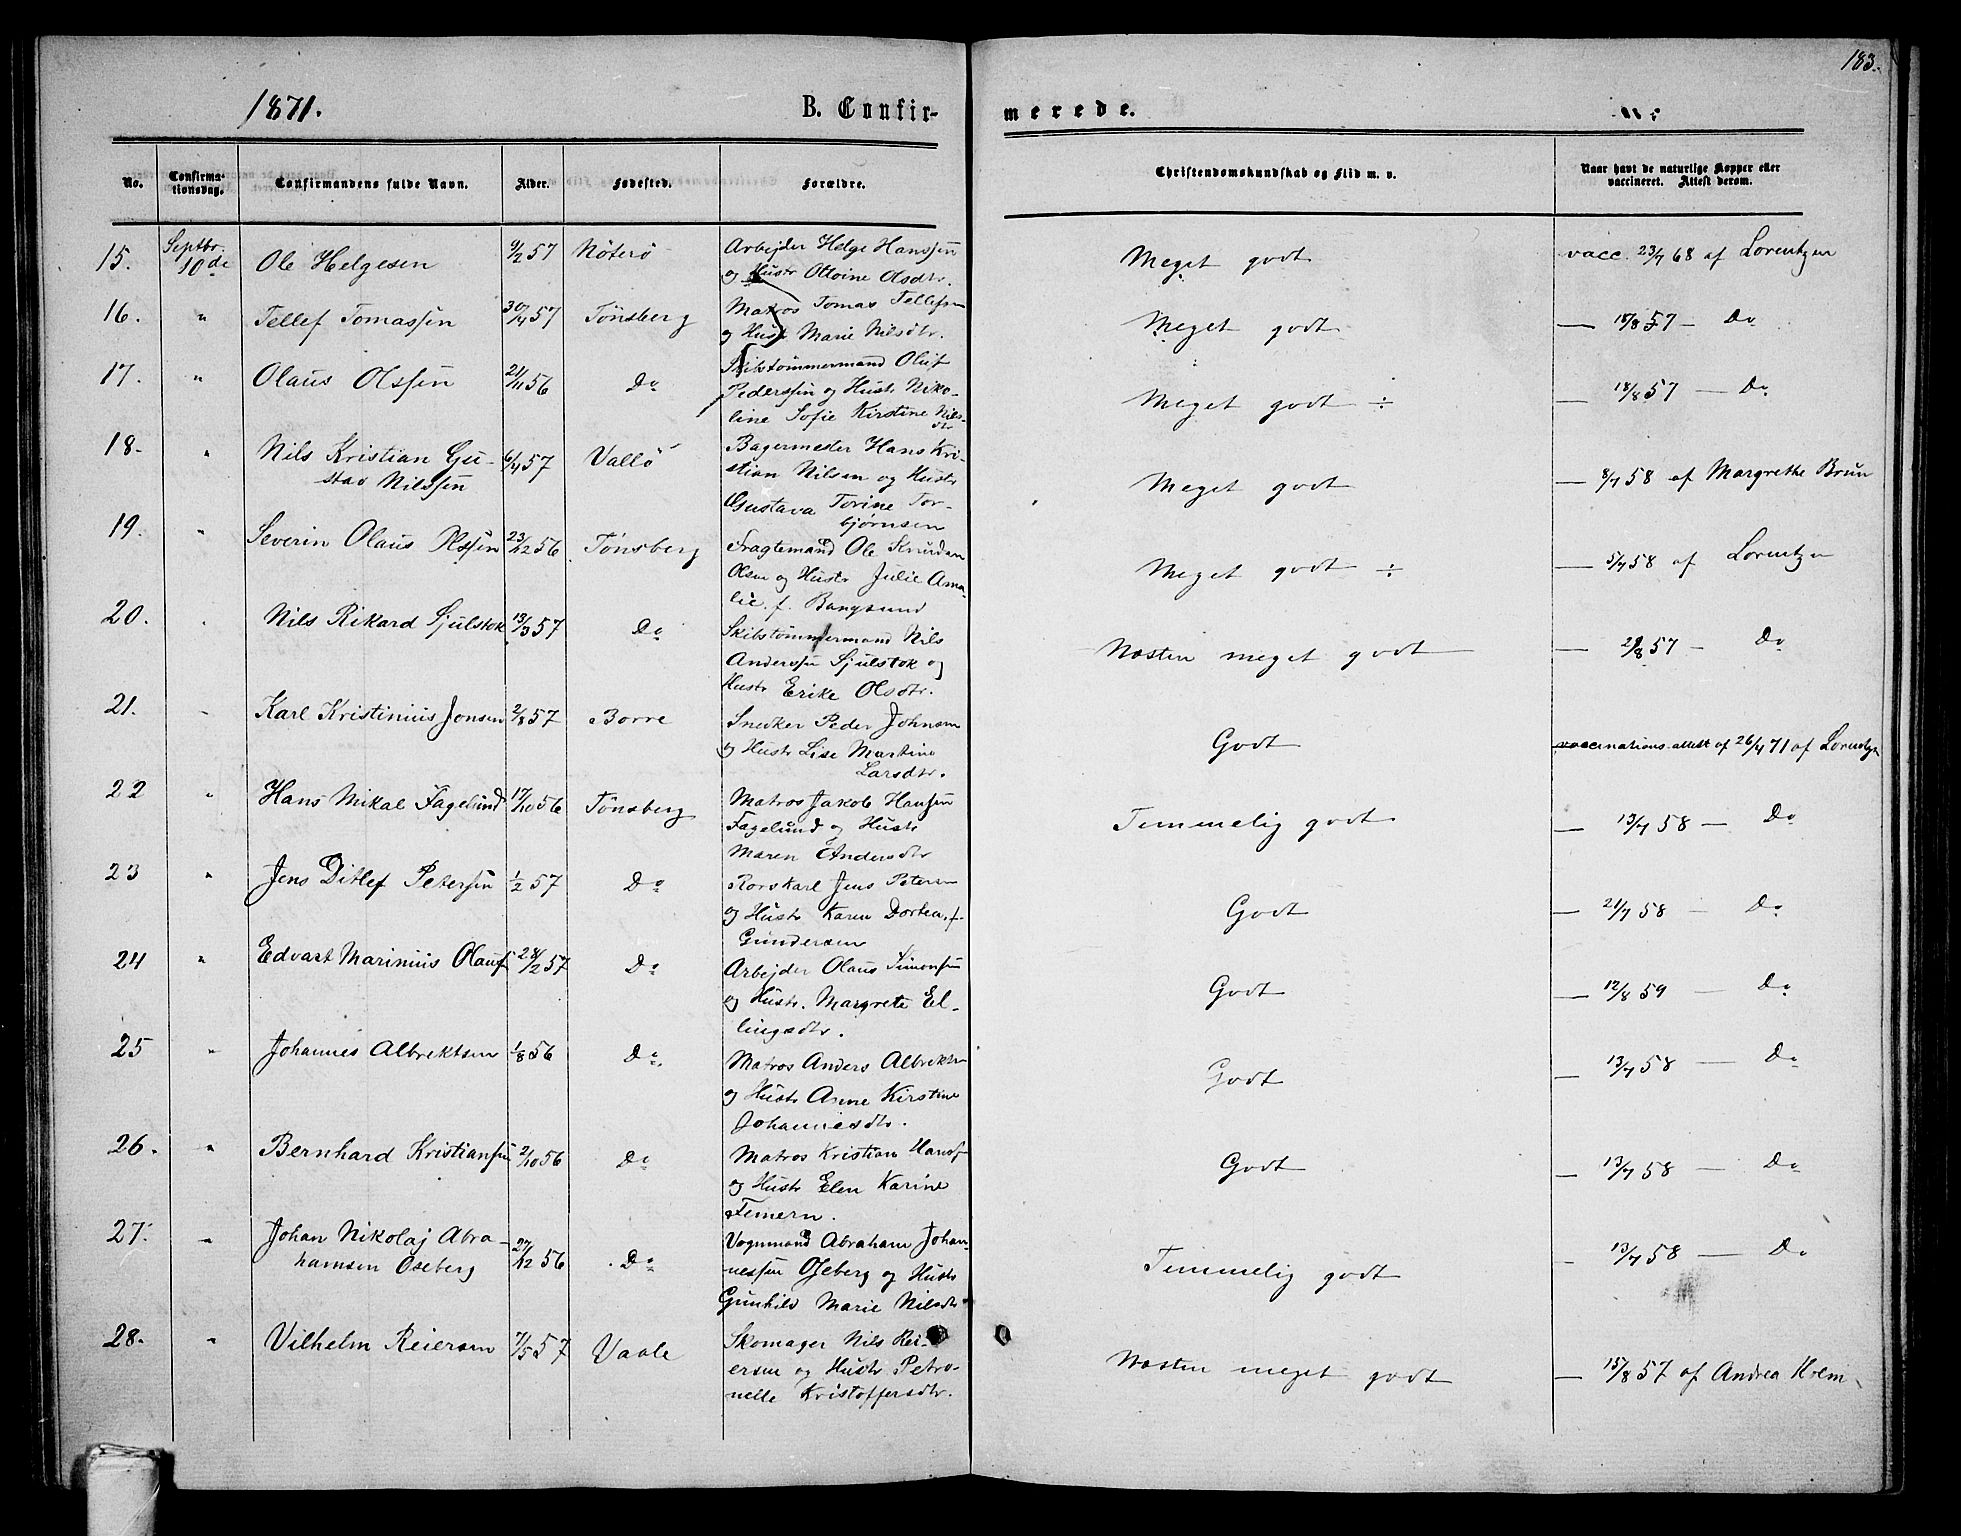 183.
1871.
B. Confir-
merede.
No.
Confirma-
tionsdag.
Confirmandens fulde Navn.
Alder.
Fødested.
Forældre.
Christendomskundskab og Flid m. v.
Naar havt de naturlige Kopper eller
vaccineret. Attest derom.
15. Septbr. 10de Ole Helgesen 9/2 57 Nöterö Arbejder Helge Hanssen
og Hustr Ottoine Olsdtr.
Meget godt vacc. 23/7 68 af Lorentzen
16. " Tellef Tomassen 30/4 57 Tönsberg Matros Tomas Tellefsen
og Hustr Marie Nilsdtr.
Meget godt — 18/8 57 — Do
17. " Olaus Olssen 21/11 56 Do Skibstömmermand Oluf
Pederssen og Hustr Niko-
line Sofie Kirstine Nils-
dtr
Meget godt ÷ — 18/8 57 — Do
18. " Nils Kristian Gu-
stav Nilssen 6/4 57 Vallö Bagermester Hans Kri-
stian Nilsen og Hustr
Gustava Torine Tor-
bjørnsen
Meget godt — 8/7 58 af Margrethe Brun
19. " Severin Olaus Olssen 23/12 56 Tönsberg Fragtemand Ole Knudsen
Olsen og Hustr Julie Ama-
lie f. Bangsund
Meget godt ÷ — 5/7 58 af Lorentzen
20. " Nils Rikard Sjulstok 13/3 57 Do Skibstömmermand Nils
Anderssen Sjulstok og
Hustr Erike Olsdtr.
Næsten meget godt — 29/8 57 — Do
21. " Karl Kristinius Jonsen 2/8 57 Borre Snedker Peder Johnsen
og Hustr Lise Martine
Larsdtr.
Godt vaccinations-attest af 26/4 71 af Lorentzen
22 " Hans Mikal Fagelund 17/10 56 Tönsberg Matros Jakob Hansen
Fagelund og Hustr
Maren Andersdtr
Temmelig godt — 13/7 58 — Do
23 " Jens Ditlef Petersen 1/2 57 Do Rorskarl Jens Petersen
og Hustr Karen Dortea f.
Gundersen
Godt — 21/7 58 — Do
24 " Edvart Marinius Olauss 28/2 57 Do Arbejder Olaus Simonsen
og Hustr. Margrete El-
lingsdtr.
Godt — 12/8 59 — Do
25 " Johannes Albrektsen 1/8 56 Do. Matros Anders Albrektsen
og Hustr Anne Kirstine
Johannesdtr.
Godt — 13/7 58 — Do
26. " Bernhard Kristiansen 2/10 56 Do Matros Kristian Hanss
og Hustr Elen Karine
Femern.
Godt — 13/7 58 — Do
27. " Johan Nikolaj Abra-
hamsen Oseberg 27/12 56 Do Vognmand Abraham Johan-
nessen Oseberg og Hustr
Gunhild Marie Nilsdtr
Temmelig godt — 13/7 58 — Do
28. " Vilhelm Reiersen 7/5 57 Vaale Skomager Nils Rei-
ersen og Hustr Petro-
nelle Kristoffersdtr.
Næsten meget godt — 15/8 57 af Andrea Holm